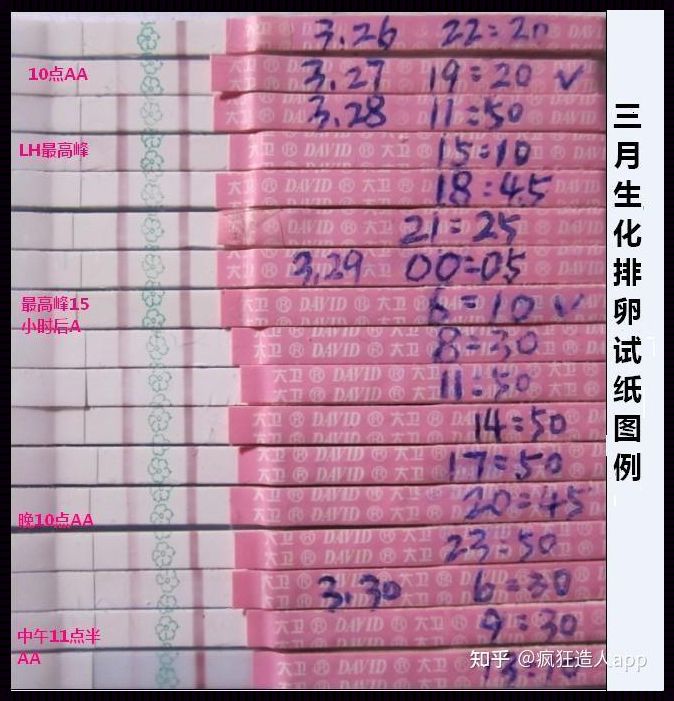 3.26 22:20
10点AA
3.27 19:20 ✓
3.28 11:50
LH最高峰
15:10
大卫 ® DAVID ® 大卫 ® DAVID
18:45
21:25
3.29 00:05
最高峰15
小时后A
6:10 ✓
8:30
大卫 ® DAVID ® 大卫
11:50
14:50
17:50
晚10点AA
20:45
23:50
3.30 6:30
9:30
中午11点半
AA
三月生化排卵试纸图例
知乎 @疯狂造人app